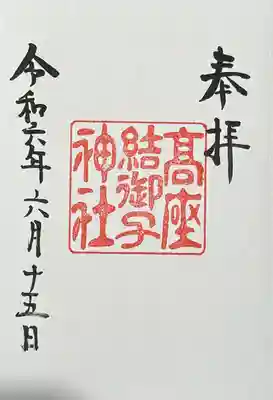 奉拝
高座
結御子
神社
令和六年六月十五日